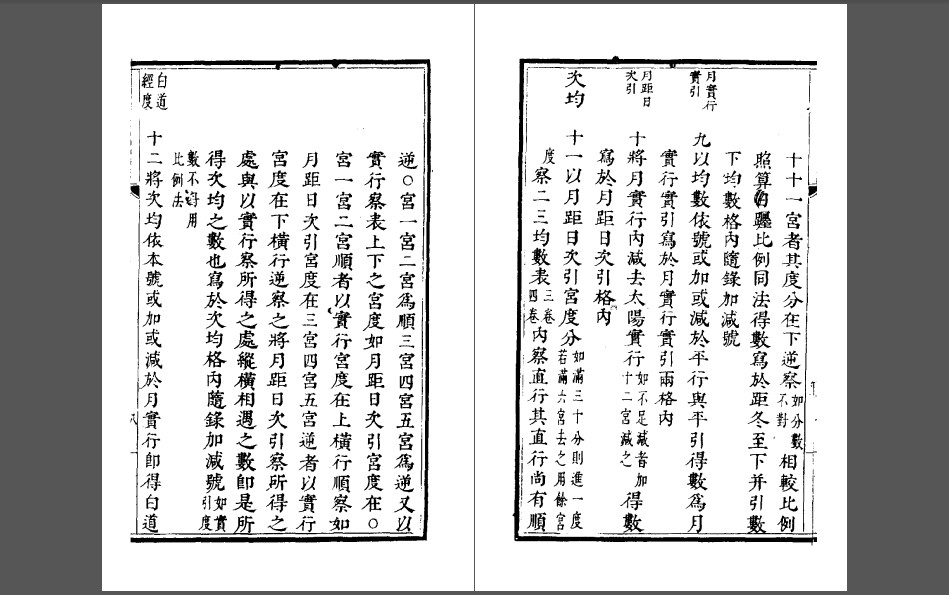 十十一宮者其度分在下逆察如分數不對相較比例
照算日躔比例同法得數寫於距冬至下并引數
下均數格內隨錄加減號
月實行實引
九以均數依號或加或減於平行與平引得數為月
實行實引寫於月實行實引兩格內
月距日次引
十將月實行內減去太陽實行如不足減者加十二宮減之得數
寫於月距日次引格內
次均
十一以月距日次引宮度分如滿三十分則進一度若滿六宮去之用餘宮
度察二三均數表三卷四卷內察直行其直行尚有順
逆○宮一宮二宮爲順三宮四宮五宮爲逆又以
實行察表上下之宮度如月距日次引宮度在○
宮一宮二宮順者以實行宮度在上橫行順察如
月距日次引宮度在三宮四宮五宮逆者以實行
宮度在下橫行逆察之將月距日次引察所得之
處與以實行察所得之處縱橫相遇之數卽是所
得次均之數也寫於次均格內隨錄加減號如實引度
數不用比例法
白道經度
十二將次均依本號或加或減於月實行卽得白道